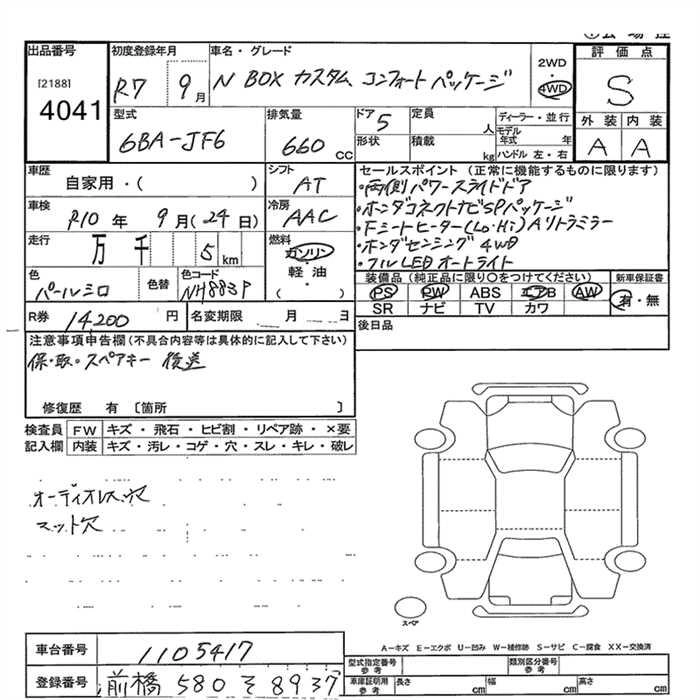 出品番号 初度登録年月 車名・グレード 評価点
[2188] 4041 R7 9月 N BOX カスタム コンフォートパッケージ 2WD 4WD S
型式 排気量 ドア 定員 ディーラー・並行 外装 内装
6BA-JF6 660 CC 5 人 モデル年式 年 A A
形状 積載 kg ハンドル 左・右
車歴 シフト セールスポイント(正常に機能するものに限ります)
自家用・( ) AT ・両側パワースライドドア
車検 冷房 ・ホンダコネクトナビSPパッケージ
R10年 9月(24日) AAC ・Fシートヒーター(Lo・Hi)Aリトラミラー
走行 燃料 ・ホンダセンシング 4WD
万 千 5 km ガソリン ・フルLEDオートライト
色 色替 色コード 軽油 装備品(純正品に限り○をつけてください) 新車保証書
パールシロ NH883P ( ) PS PW ABS エアB AW 有・無
SR ナビ TV カワ
R券 14,200円 名変期限 月 日 後日品
注意事項申告欄(不具合内容等は具体的に記入して下さい)
保・取・スペアキー 後送
修復歴 有 〔箇所 〕
検査員 FW キズ・飛石・ヒビ割・リペア跡・×要
記入欄 内装 キズ・汚レ・コゲ・穴・スレ・キレ・破レ
オーディオレス穴
マット穴
スペア
A−キズ E−エクボ U−凹み W−補修跡 S−サビ C−腐食 XX−交換済
車台番号 1105417 型式指定番号 参考 類別区分番号 参考
登録番号 前橋 580 る 8937 車庫証明用 参考 長さ cm 幅 cm 高さ cm